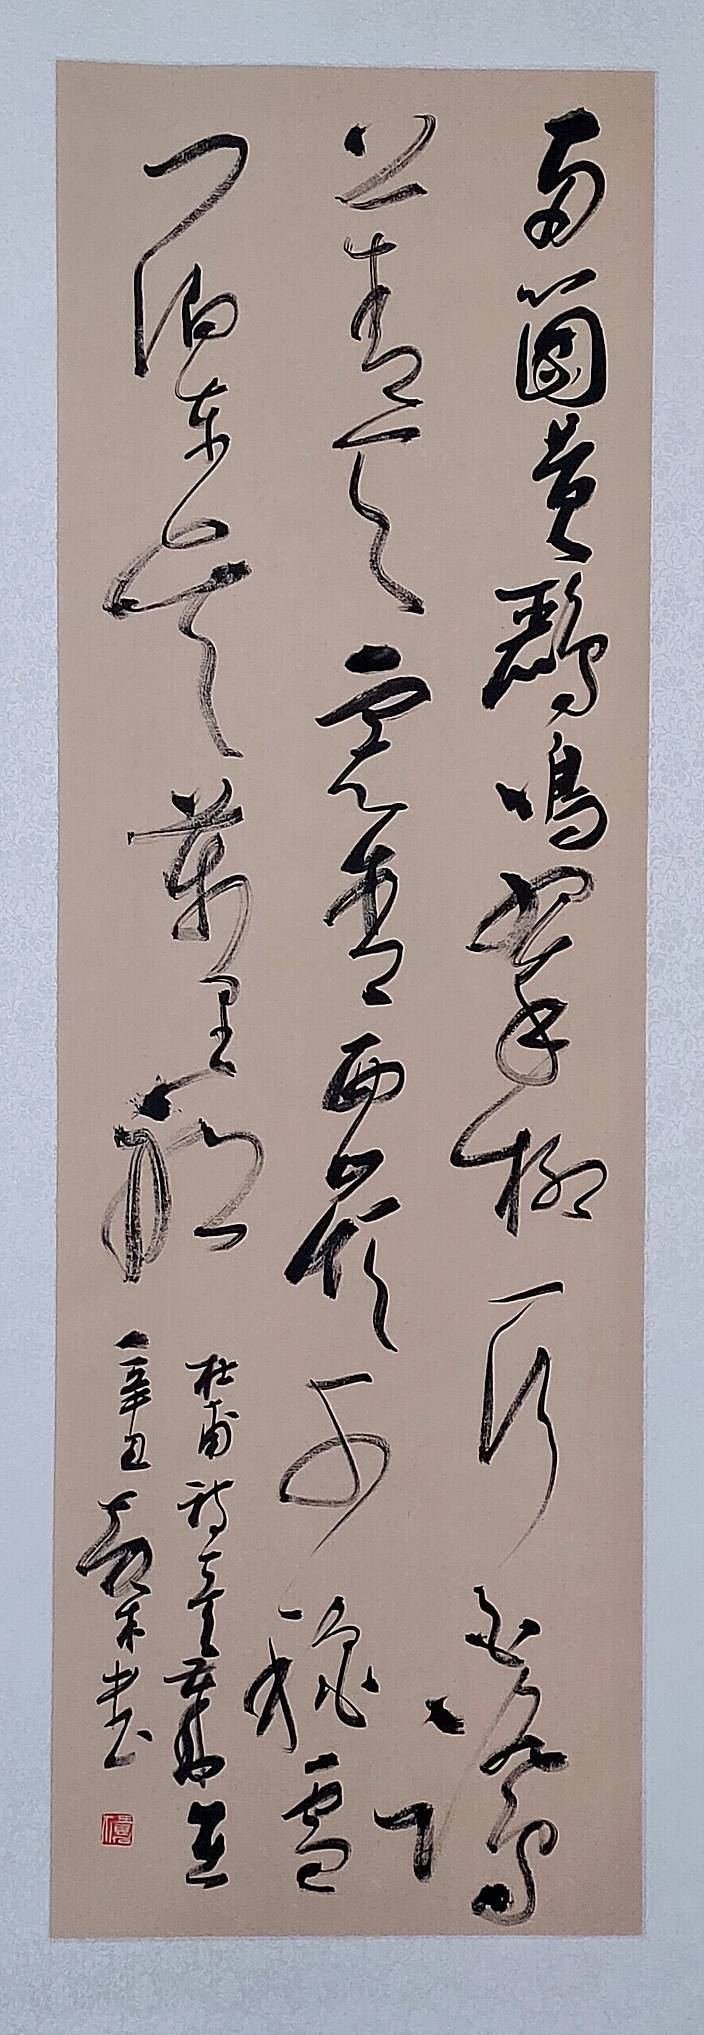 両箇黄鸝鳴翠柳一行白鷺
上青天窗含西嶺千穐雪
門泊東吳萬里船
杜甫詩
辛丑木書